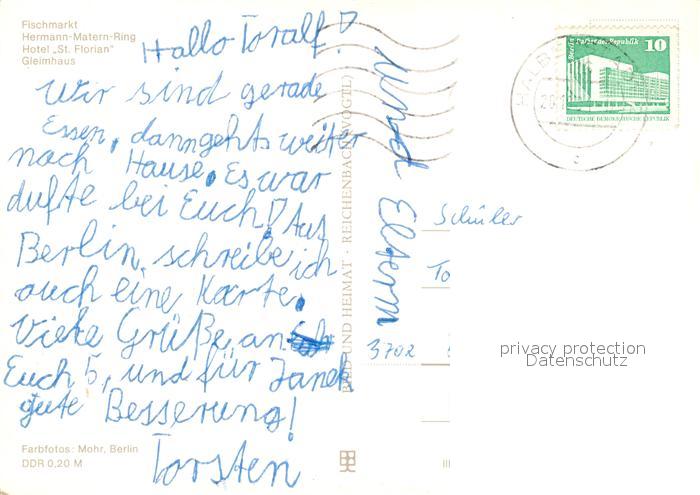 Fischmarkt
Hermann-Matern-Ring
Hotel „St. Florian"
Gleimhaus
Hallo Toralf!
Wir sind gerade
Essen, dann gehts weiter
nach Hause. Es war
dufte bei Euch! Aus
Berlin schreibe ich
auch eine Karte.
Viele Grüße an
Euch 5, und für Janek
gute Besserung!
Torsten
und Eltern
Farbfotos: Mohr, Berlin
DDR 0,20 M
BILD UND HEIMAT · REICHENBACH (VOGTL)
Berlin Palast der Republik 10
DEUTSCHE DEMOKRATISCHE REPUBLIK
HALB
Schüler
To
3702
privacy protection
Datenschutz